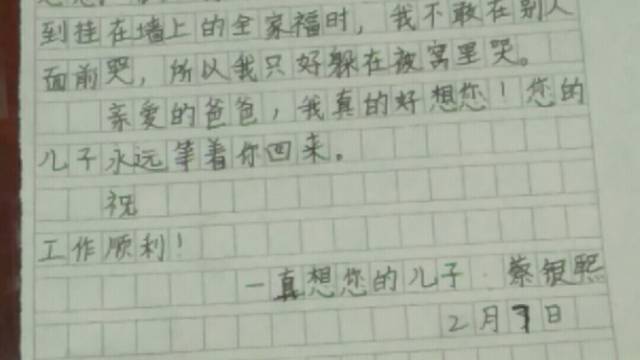 到挂在墙上的全家福时，我不敢在别人
面前哭，所以我只好躲在被窝里哭。
亲爱的爸爸，我真的好想您！您的
儿子永远等着你回来。
祝
工作顺利！
一真想您的儿子 蔡银熙
2月7日